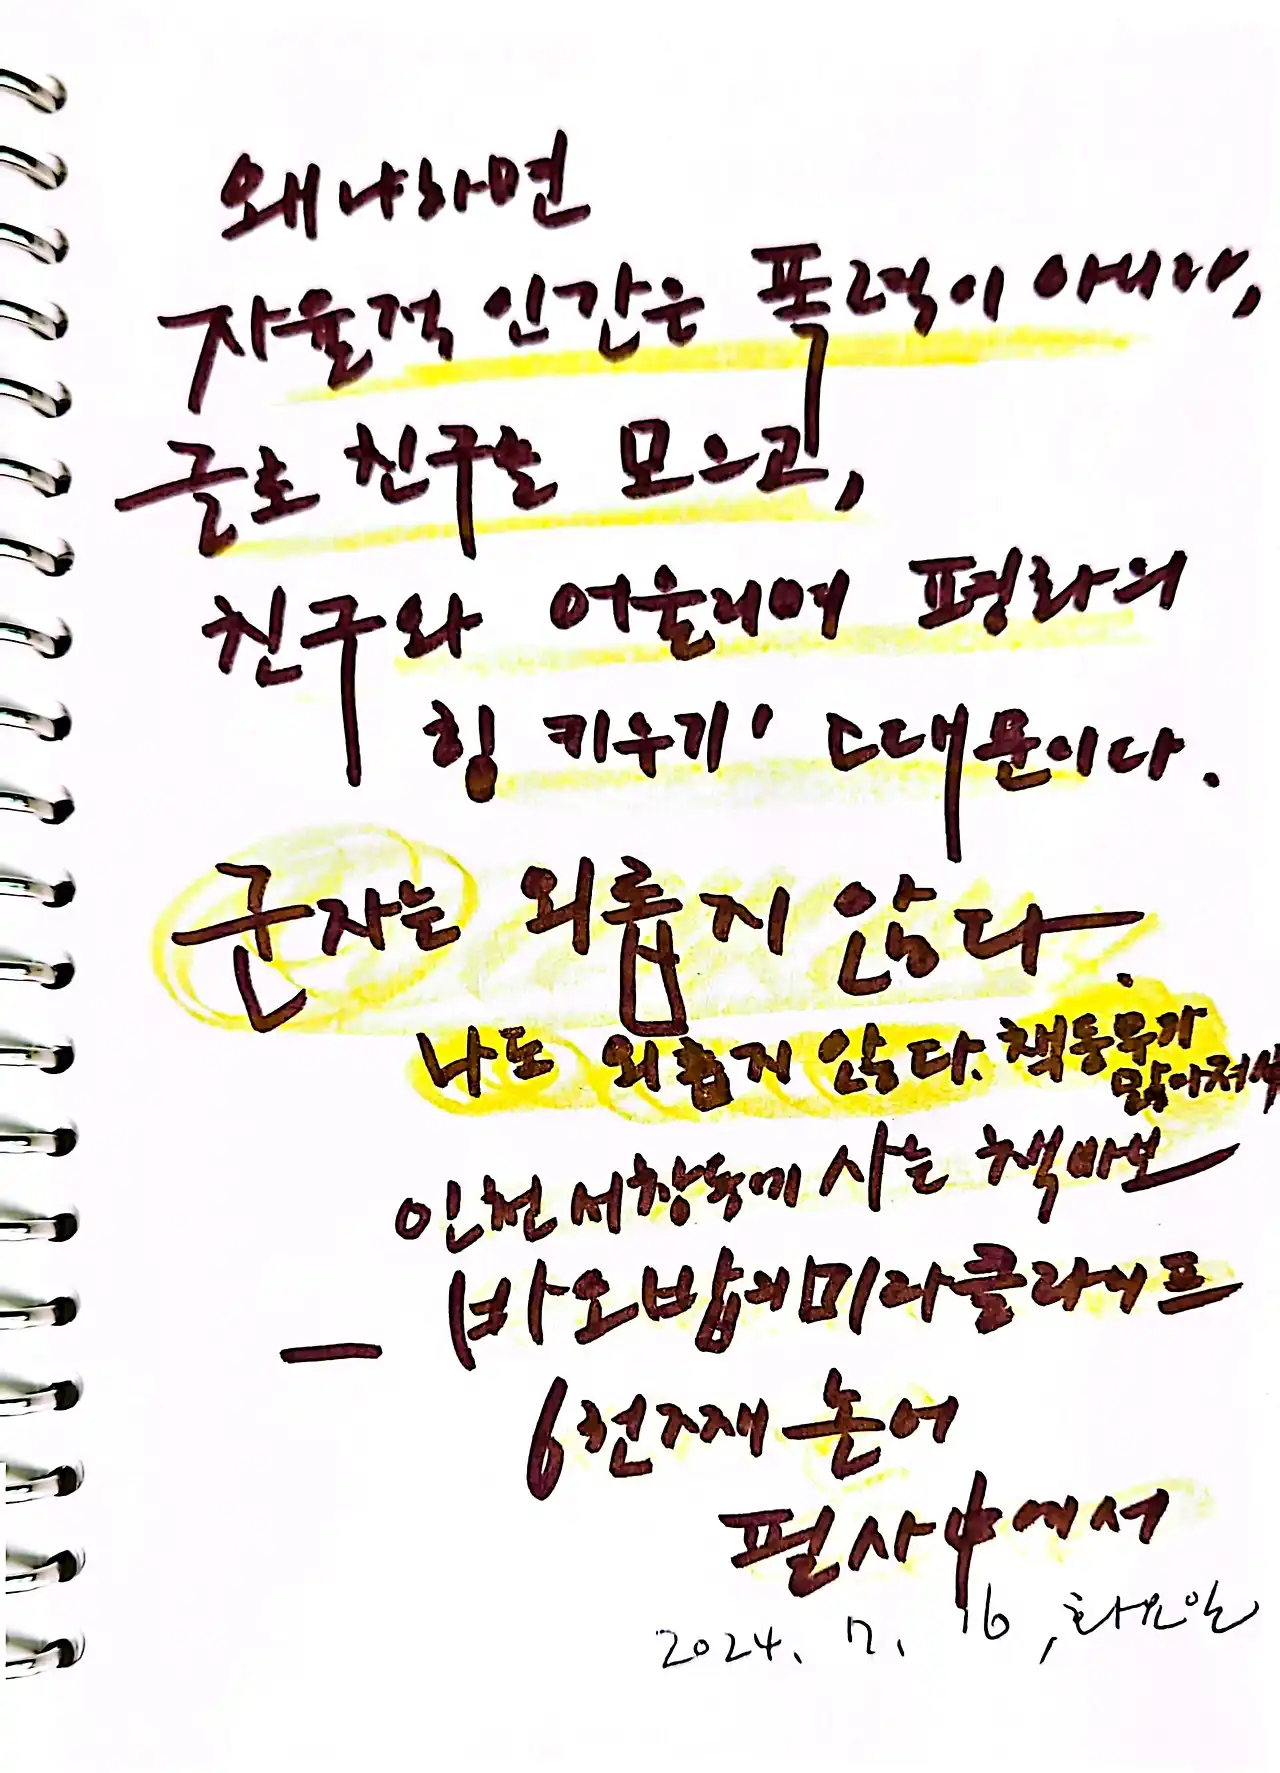 왜냐하면
자율적 인간은 폭력이 아니라,
글로 친구를 모으고,
친구와 어울리며 평화의
힘 키우기 때문이다.
군자는 외롭지 않다.
나도 외롭지 않다. 책동무가
많아져서
인천 서창동에 사는 책바보
— 바오밥의미라클라이프
6천째 논어
필사中에서
2024. 7. 16, 화요일